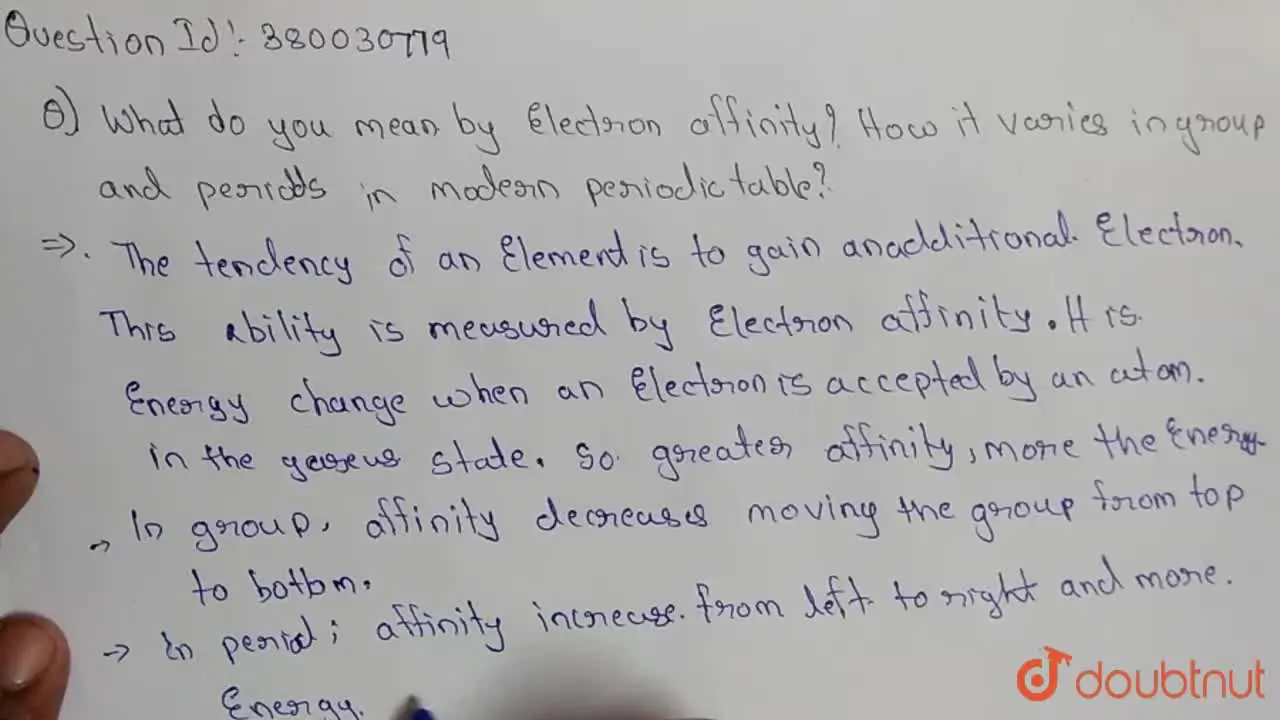 Question Id:- 380030779
Q) What do you mean by Electron affinity? How it varies in group
and periods in modern periodic table?
=>. The tendency of an Element is to gain an additional. Electron.
This ability is measured by Electron affinity. It is.
Energy change when an Electron is accepted by an atom.
in the gaseus state. So. greater affinity, more the Energy
→ In group, affinity decreases moving the group from top
to bottom.
→ In period; affinity increase. from left to right and more.
Energy.
doubtnut